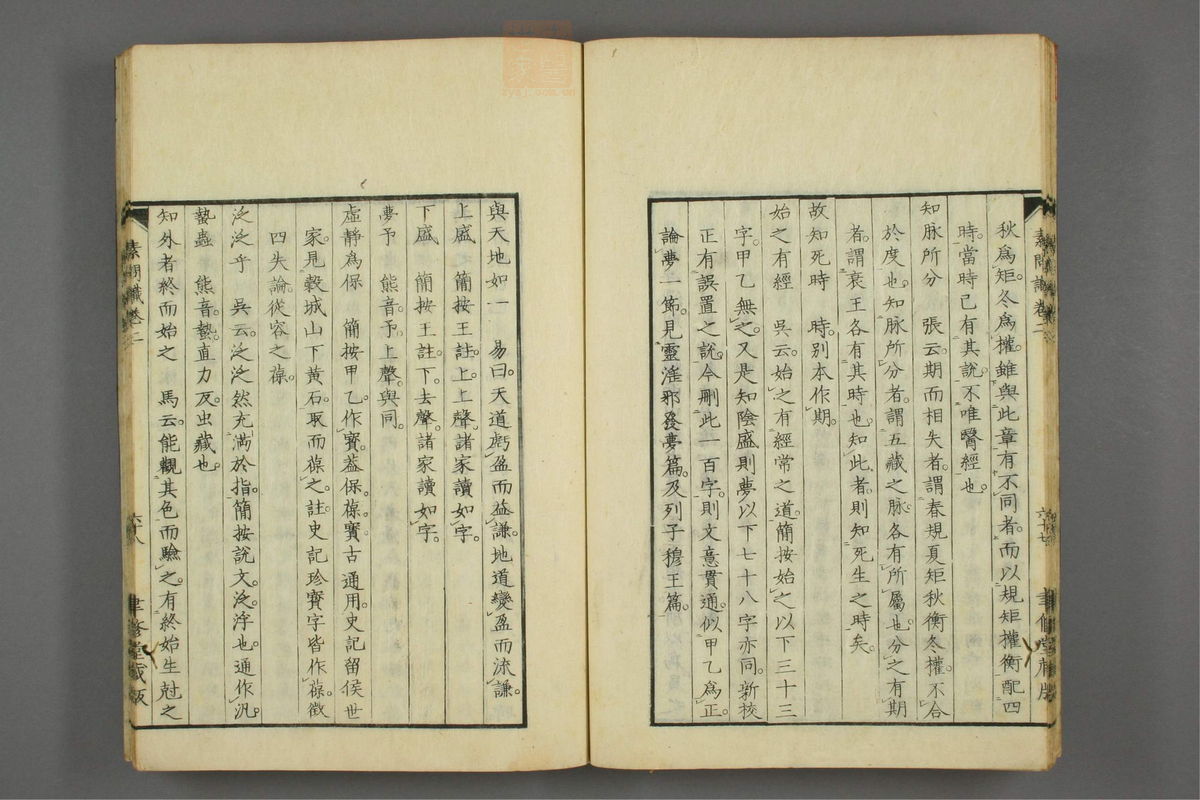 秋爲矩冬爲權雖與此章有不同者而以規矩權衡配四
時當時已有其說不唯醫經也
知脉所分　張云期而相失者謂春規夏矩秋衡冬權不合
於度也知脉所分者謂五藏之脉各有所屬也分之有期
者謂衰王各有其時也知此者則知死生之時矣
故知死時　時別本作期
始之有經　吳云始之有經常之道簡按始之以下三十三
字甲乙無之又是知陰盛則夢以下七十八字亦同新校
正有誤置之說今刪此一百字則文意貫通似甲乙爲正
論夢一節見靈淫邪發夢篇及列子穆王篇
素問識卷二
六十七
與天地如一　易曰天道虧盈而益謙地道變盈而流謙
上盛　簡按王註上上聲諸家讀如字
下盛　簡按王註下去聲諸家讀如字
夢予　熊音予上聲與同
虛靜爲保　簡按甲乙作寶葢保葆寶古通用史記留侯世
家見穀城山下黃石取而葆之註史記珍寶字皆作葆徵
四失論從容之葆
泛泛乎　吳云泛泛然充滿於指簡按說文泛浮也通作汎
蟄蟲　熊音蟄直力反虫藏也
知外者終而始之　馬云能觀其色而驗之有終始生尅之
素問識卷二
六十八
聿修堂藏版